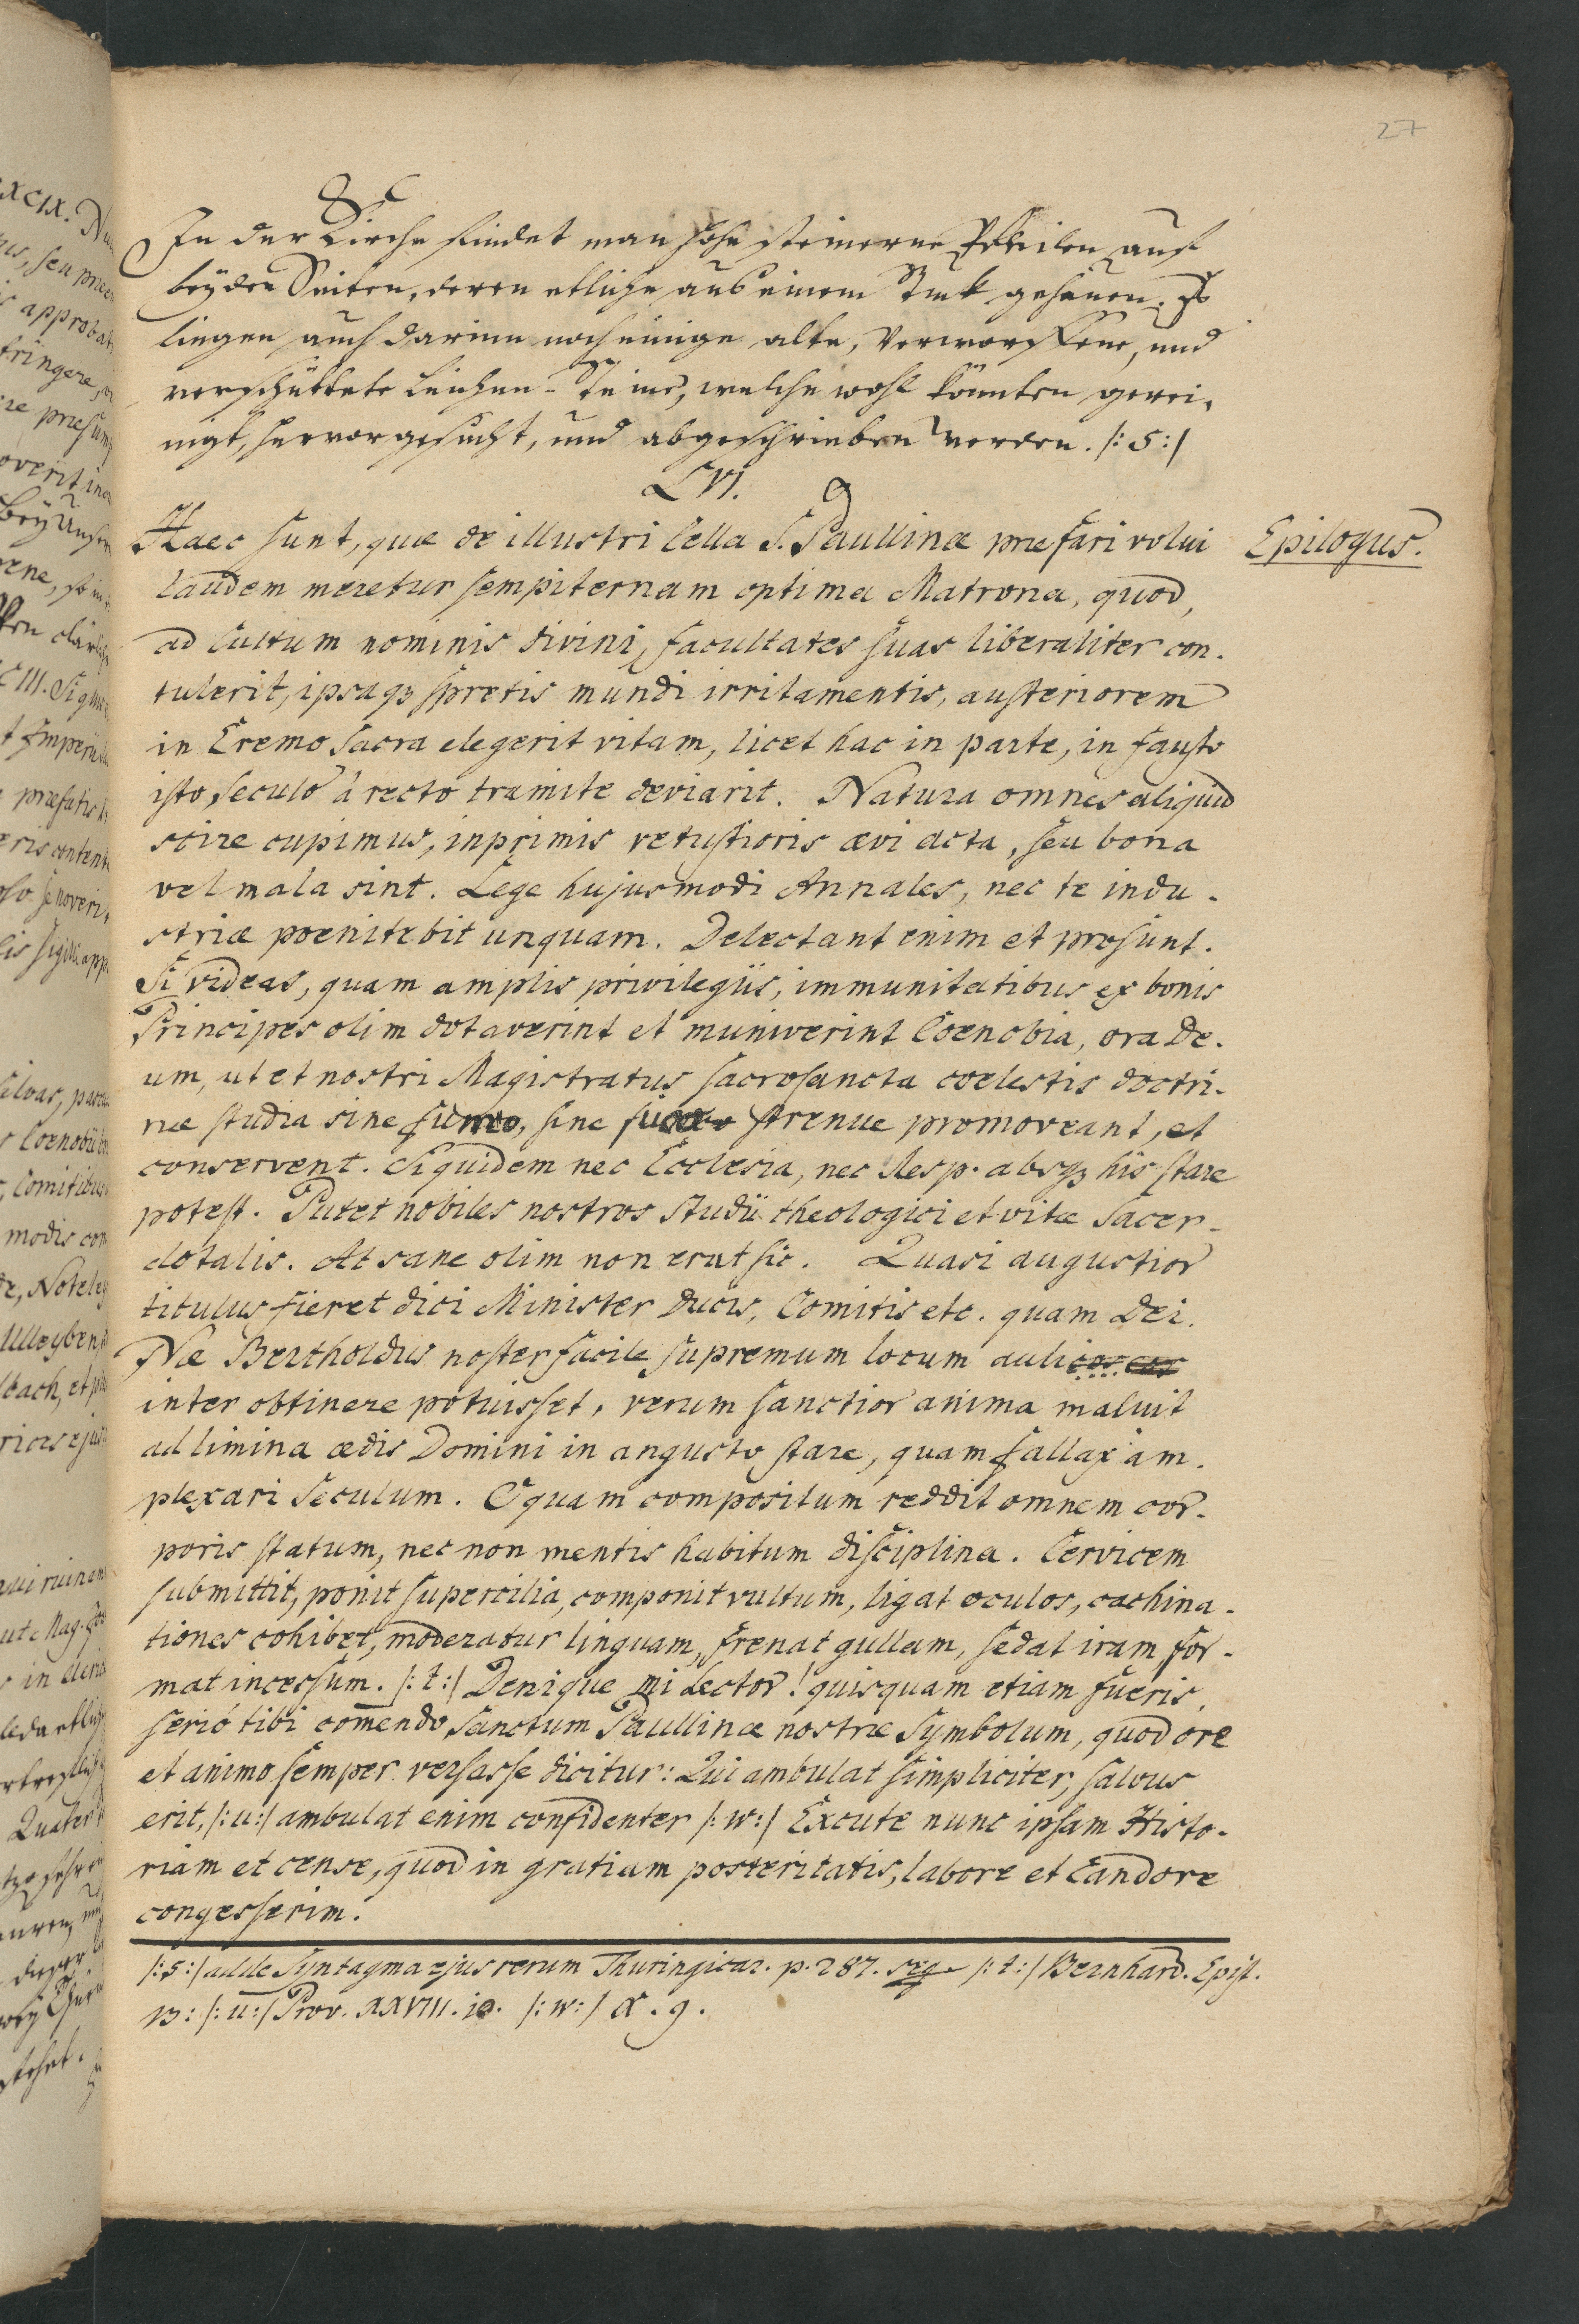 27
In der Kirche findet man hohe steinerne Pfeiler auf
beyden Seiten, deren etliche aus einem Stuk gehauen. Es
liegen auch darinn noch einige alte, verworffene, und
verschüttete Leichen-Steine, welche wohl könnten gerei,
nigt, hervorgesucht, und abgeschrieben werden. /:s:/
LVI.
Haec sunt, quæ de illustri Cella S. Paullinæ præfari volui
Epilogus.
Laudem meretur sempiternam optima Matrona, quod,
ad Cultum nominis divini, facultates suas liberaliter con-
tulerit, ipsaqꝫ spretis mundi irritamentis, austeriorem
in Eremo sacra elegerit vitam, licet hac in parte, infausto
isto, seculo à recto tramite deviarit. Natura omnes aliquid
scire cupimus, inprimis vetustioris ævi acta, seu bona
vel mala sint. Lege hujusmodi Annales, nec te indu-
striæ poenitebit unquam. Delectant enim et prosunt.
Si videas, quam amplis privilegiis, immunitatibus ex bonis
Principes olim dotaverint et muniverint Coenobia, ora De-
um, ut et nostri Magistratus sacrosancta coelestis doctri-
næ studia sine fumo, sine fuco strenue promoveant, et
conservent. Siquidem nec Ecclesia, nec Resp. absqꝫ his stare
potest. Putet nobiles nostros studii theologici et vitæ Sacer-
dotalis. At sane olim non erat sic. Quasi augustior
titulus fieret dici Minister Ducis, Comitis etc. quam Dei.
Næ Bertholdus noster facile supremum locum aulicos
inter obtinere potuisset, verum sanctior anima maluit
ad limina ædis Domini in angusto stare, quam fallax am-
plexari seculum. O quam compositum reddit omnem cor-
poris statum, nec non mentis habitum disciplina. Cervicem
submittit, ponit supercilia, componit vultum, ligat oculos, cachina-
tiones cohibet, moderatur linguam, frenat gullam, sedat iram, for-
mat incessum. /:t:/ Denique mi Lector! quisquam etiam fueris,
serió tibi com̄endo sanctum Paullinæ nostræ Symbolum, quod ore
et animo semper versasse dicitur: Qui ambulat simpliciter, salvus
erit, /:u:/ ambulat enim confidenter /:w:/ Excute nunc ipsam Histo-
riam et cense, quod in gratiam posteritatis, labore et Candore
congesserim.
/:s:/ adde Syntagma ejus rerum Thuringicar. p. 287. seq. /:t:/ Bernhard. Epist.
113: /:u:/ Prov. XXVIII. 18. /:w:/ X. 9.